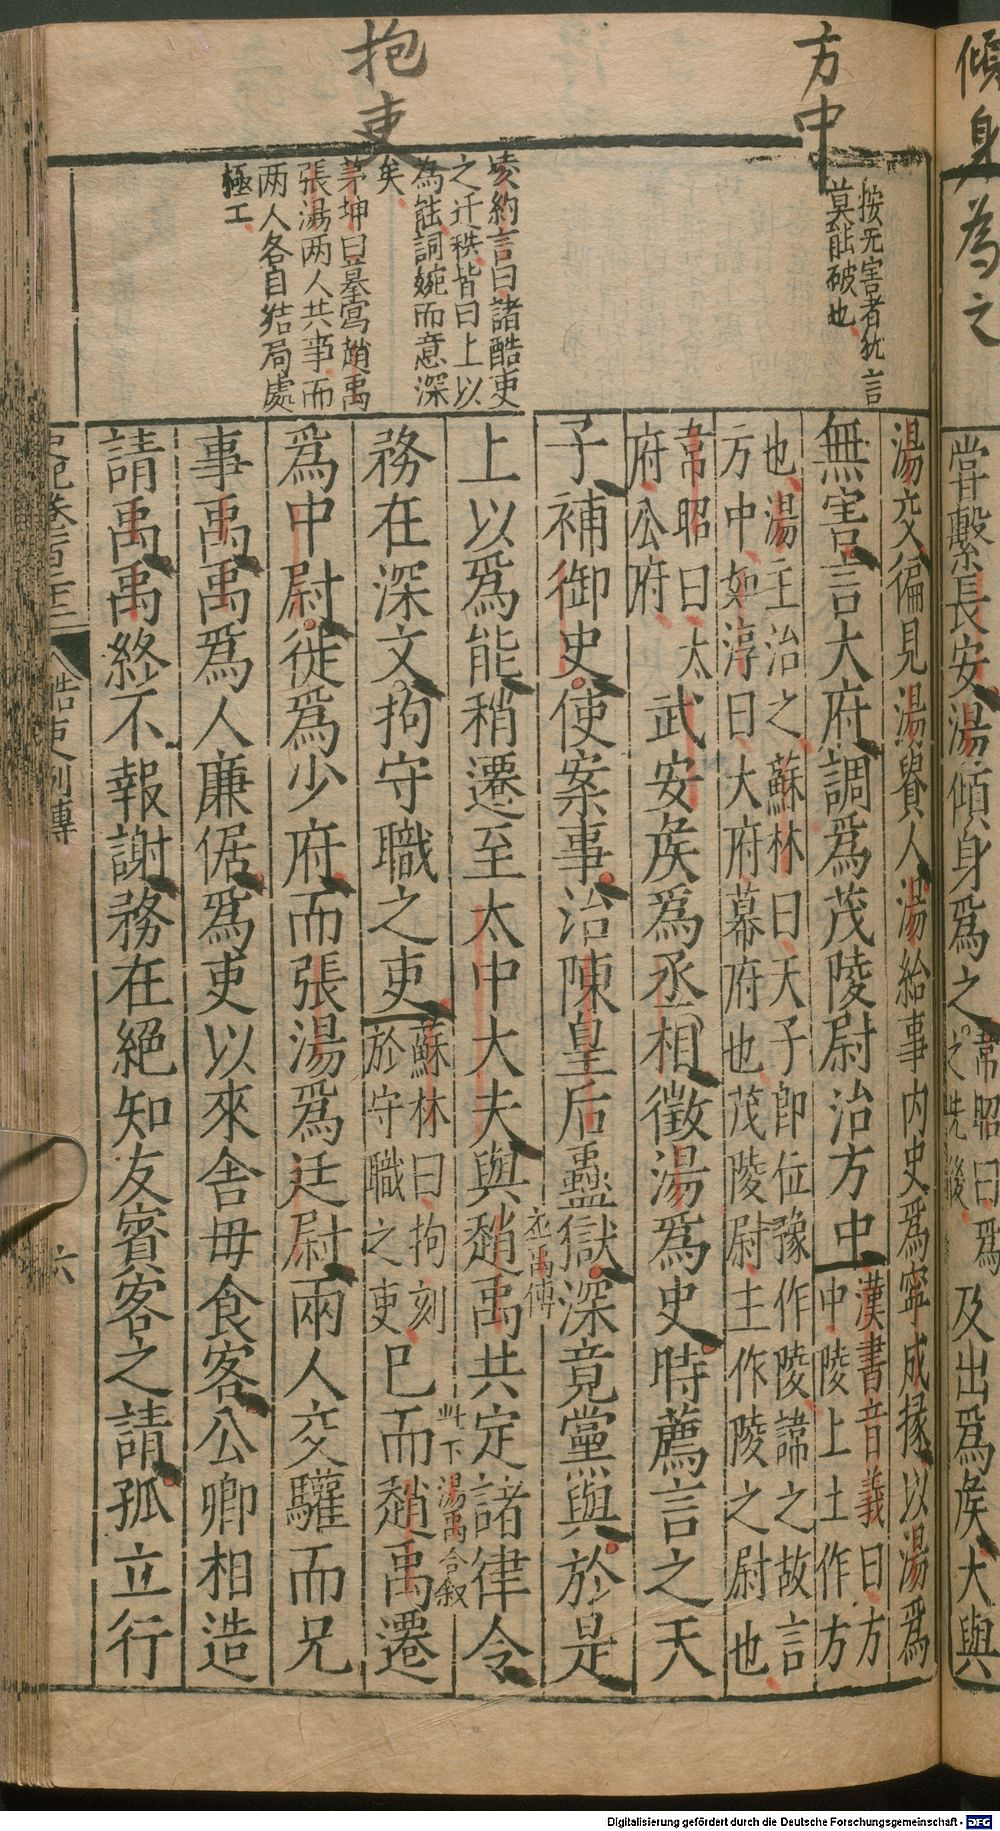 傾身
為之
嘗繫長安湯傾身爲之韋昭曰爲
之先後
及出爲矦大與
方中
抱吏
按无害者犹言
莫能破也
凌約言曰諸酷吏
之迁秩皆曰上以
為能詞婉而意深
矣
茅坤曰摹寫趙禹
張湯两人共事而
两人各自结局處
極工
湯交徧見湯貴人湯給事内史爲寧成掾以湯爲
無害言大府調爲茂陵尉治方中漢書音義曰方
中陵上土作方
也湯主治之蘇林曰天子即位豫作陵諱之故言
方中如淳曰大府幕府也茂陵尉主作陵之尉也
韋昭曰太
府公府
武安矦爲丞相徵湯爲史時薦言之天
子補御史使案事治陳皇后蠱獄深竟黨與於是
丞禹傳
上以爲能稍遷至太中大夫與趙禹共定諸律令
此下湯禹合叙
務在深文拘守職之吏蘇林曰拘刻
於守職之吏
已而趙禹遷
爲中尉徙爲少府而張湯爲廷尉兩人交驩而兄
事禹禹爲人廉倨爲吏以來舍毋食客公卿相造
請禹禹終不報謝務在絕知友賓客之請孤立行
史記卷一百二十二 酷吏列傳 六
Digitalisierung gefördert durch die Deutsche Forschungsgemeinschaft - DFG